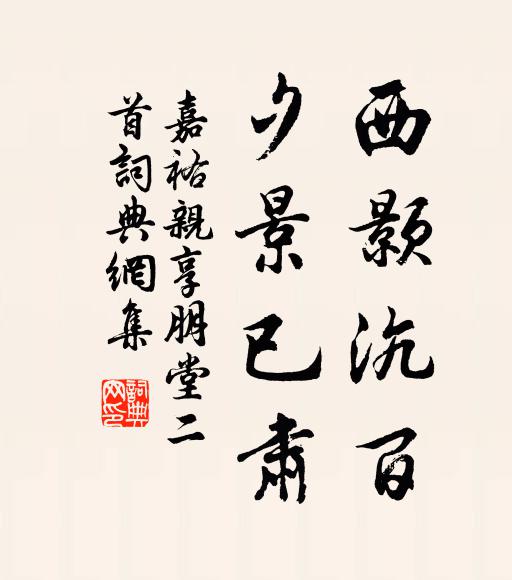 西顥沉百
夕景已肅
嘉祐親享明堂二
首詞典網集
詞典網印